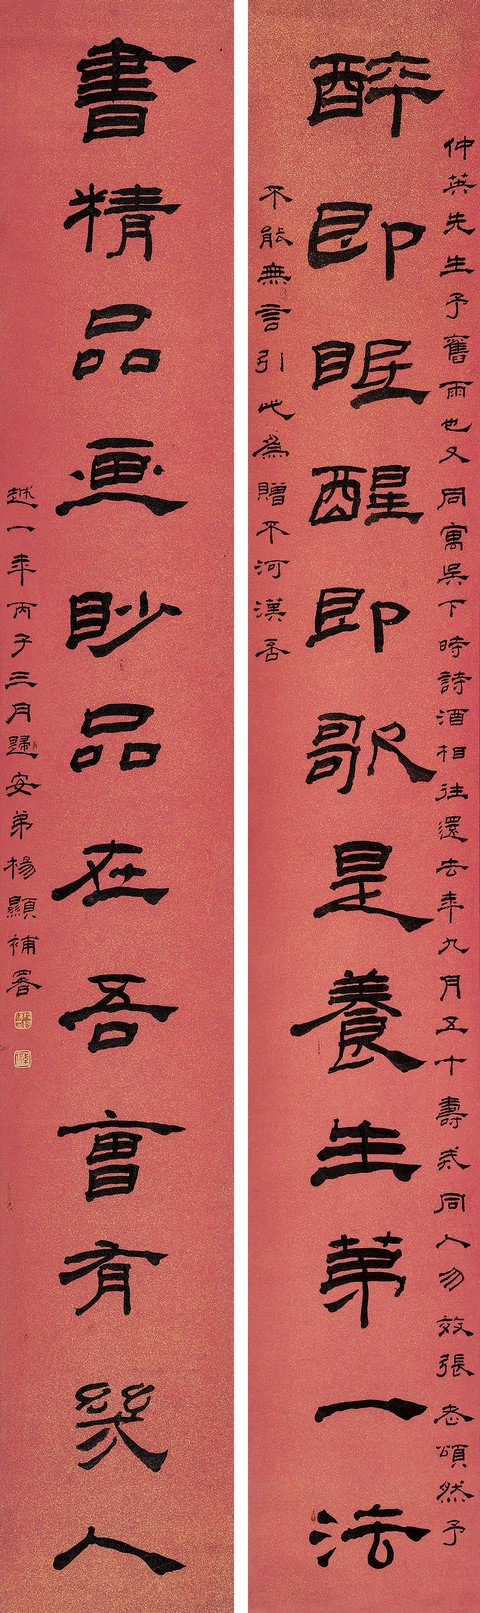 仲英先生予舊雨也又同寓吳下時詩酒相往還去年九月五十壽戒同人勿效張老頌然予
醉即眠醒即歌是養生第一法
不能無言引此爲贈不河漢否
書精品畫眇品在吾曹有幾人
越一年丙子三月歸安弟楊顯補署